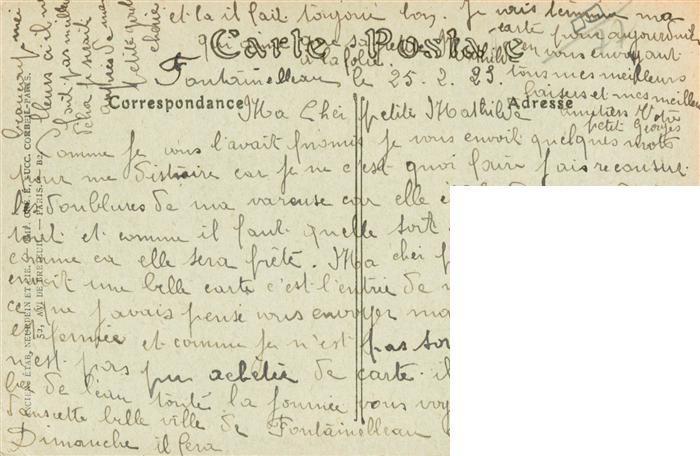 Carte Postale
Correspondance
Adresse
Fontainelleau le 25. 2. 23.
Ma Cher petite Mathilde
Comme je vous l'avait promis je vous envoit quelques mots
pour me distraire car je ne c'est quoi faire jais reconsut
les doublures de ma vareuse car elle é
tout et comme il faut quelle sort
comme ca elle sera prête. Ma cher p
envoit une belle carte c'est l'entrie de
ce que javais pensé vous envoyer ma
fermée et comme je n'est pas sor
n'est pas pu achetée de carte il
de l'eau toute la journée vous voy
dans cette belle ville de Fontainelleau
Dimanche il fera
et la il fait toujour bon. Je vais terminer ma
carte pour aujourd'hui
en vous envoyant
tous mes meilleurs
baisers et mes meilleurs
amitiers Votre
petit Georges
ANCIENS ÉTAB. NEURDEIN ET CIE. — IMP. CRÉTÉ, SUCC. CORBEIL-PARIS.
52, AV. DE BRETEUIL. — PARIS.